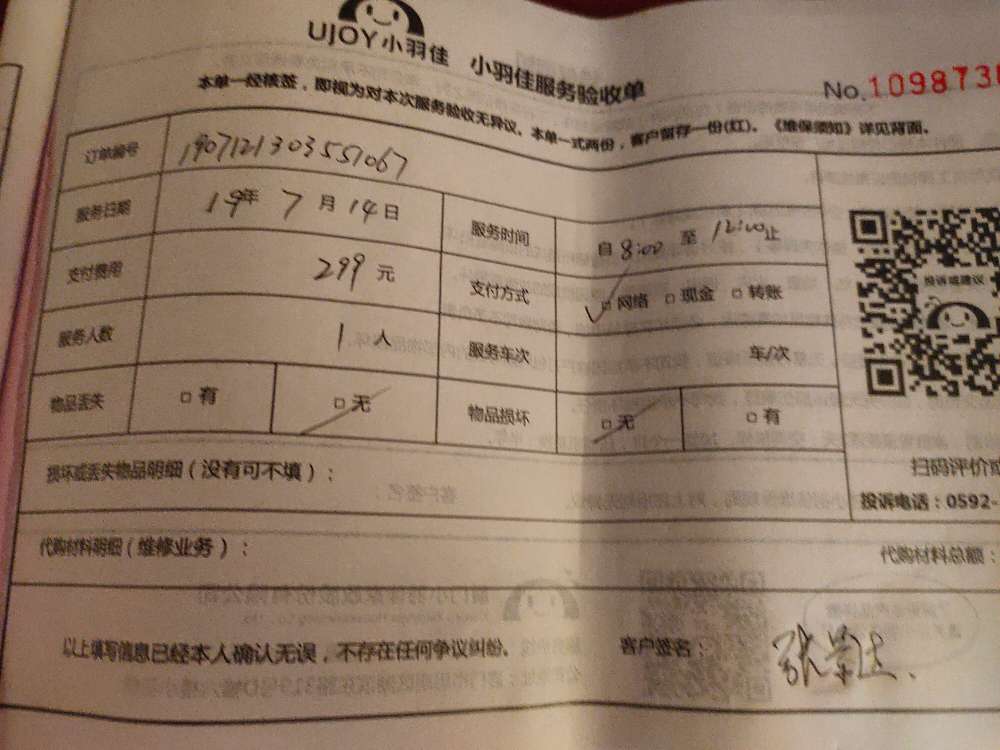 UJOY小羽佳 小羽佳服务验收单
No.109873
本单一经核签，即视为对本次服务验收无异议。本单一式两份，客户留存一份(红)。《维保须知》详见背面。
订单编号 190712130355​1067
服务日期 19年 7月14日 服务时间 自 8:00 至 12:00止
支付费用 299 元 支付方式 □网络 □现金 □转账
服务人数 1 人 服务车次 年/次
物品丢失 □有 □无 物品损坏 □无 □有
投诉或建议
损坏或丢失物品明细（没有可不填）：
扫码评价或
投诉电话：0592-
代购材料明细（维修业务）： 代购材料总额：
以上填写信息已经本人确认无误，不存在任何争议纠纷。 客户签名：